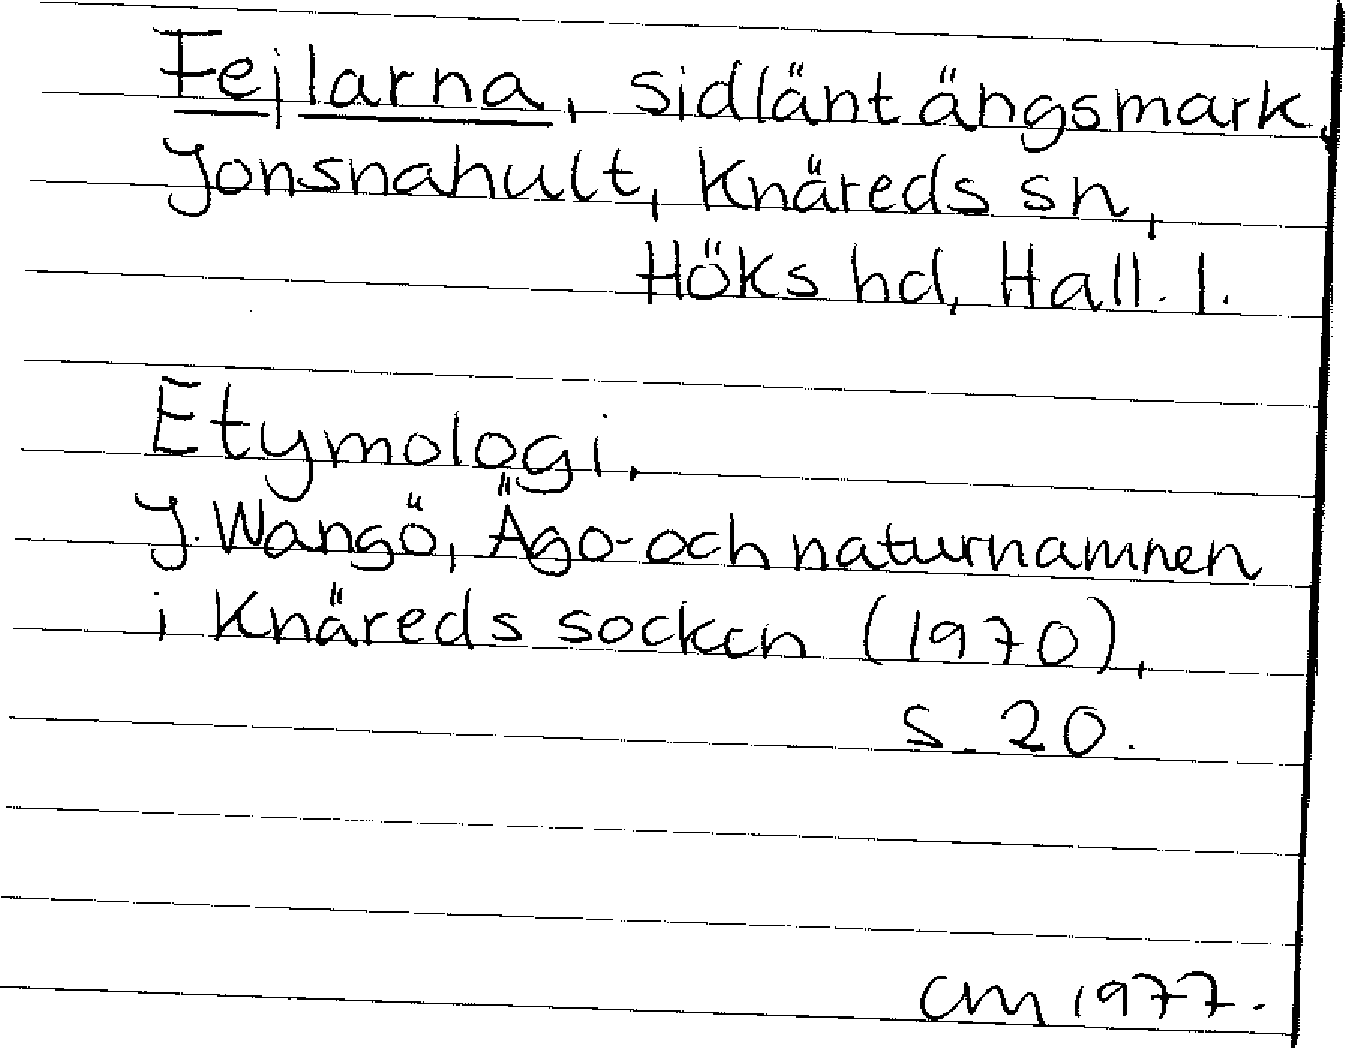 Fejlarna, sidlänt ängsmark,
Jonsnahult, Knäreds sn,
Höks hd, Hall. l.
Etymologi.
J. Wangö, Ägo- och naturnamnen
i Knäreds socken (1970),
s. 20.
CM 1977.